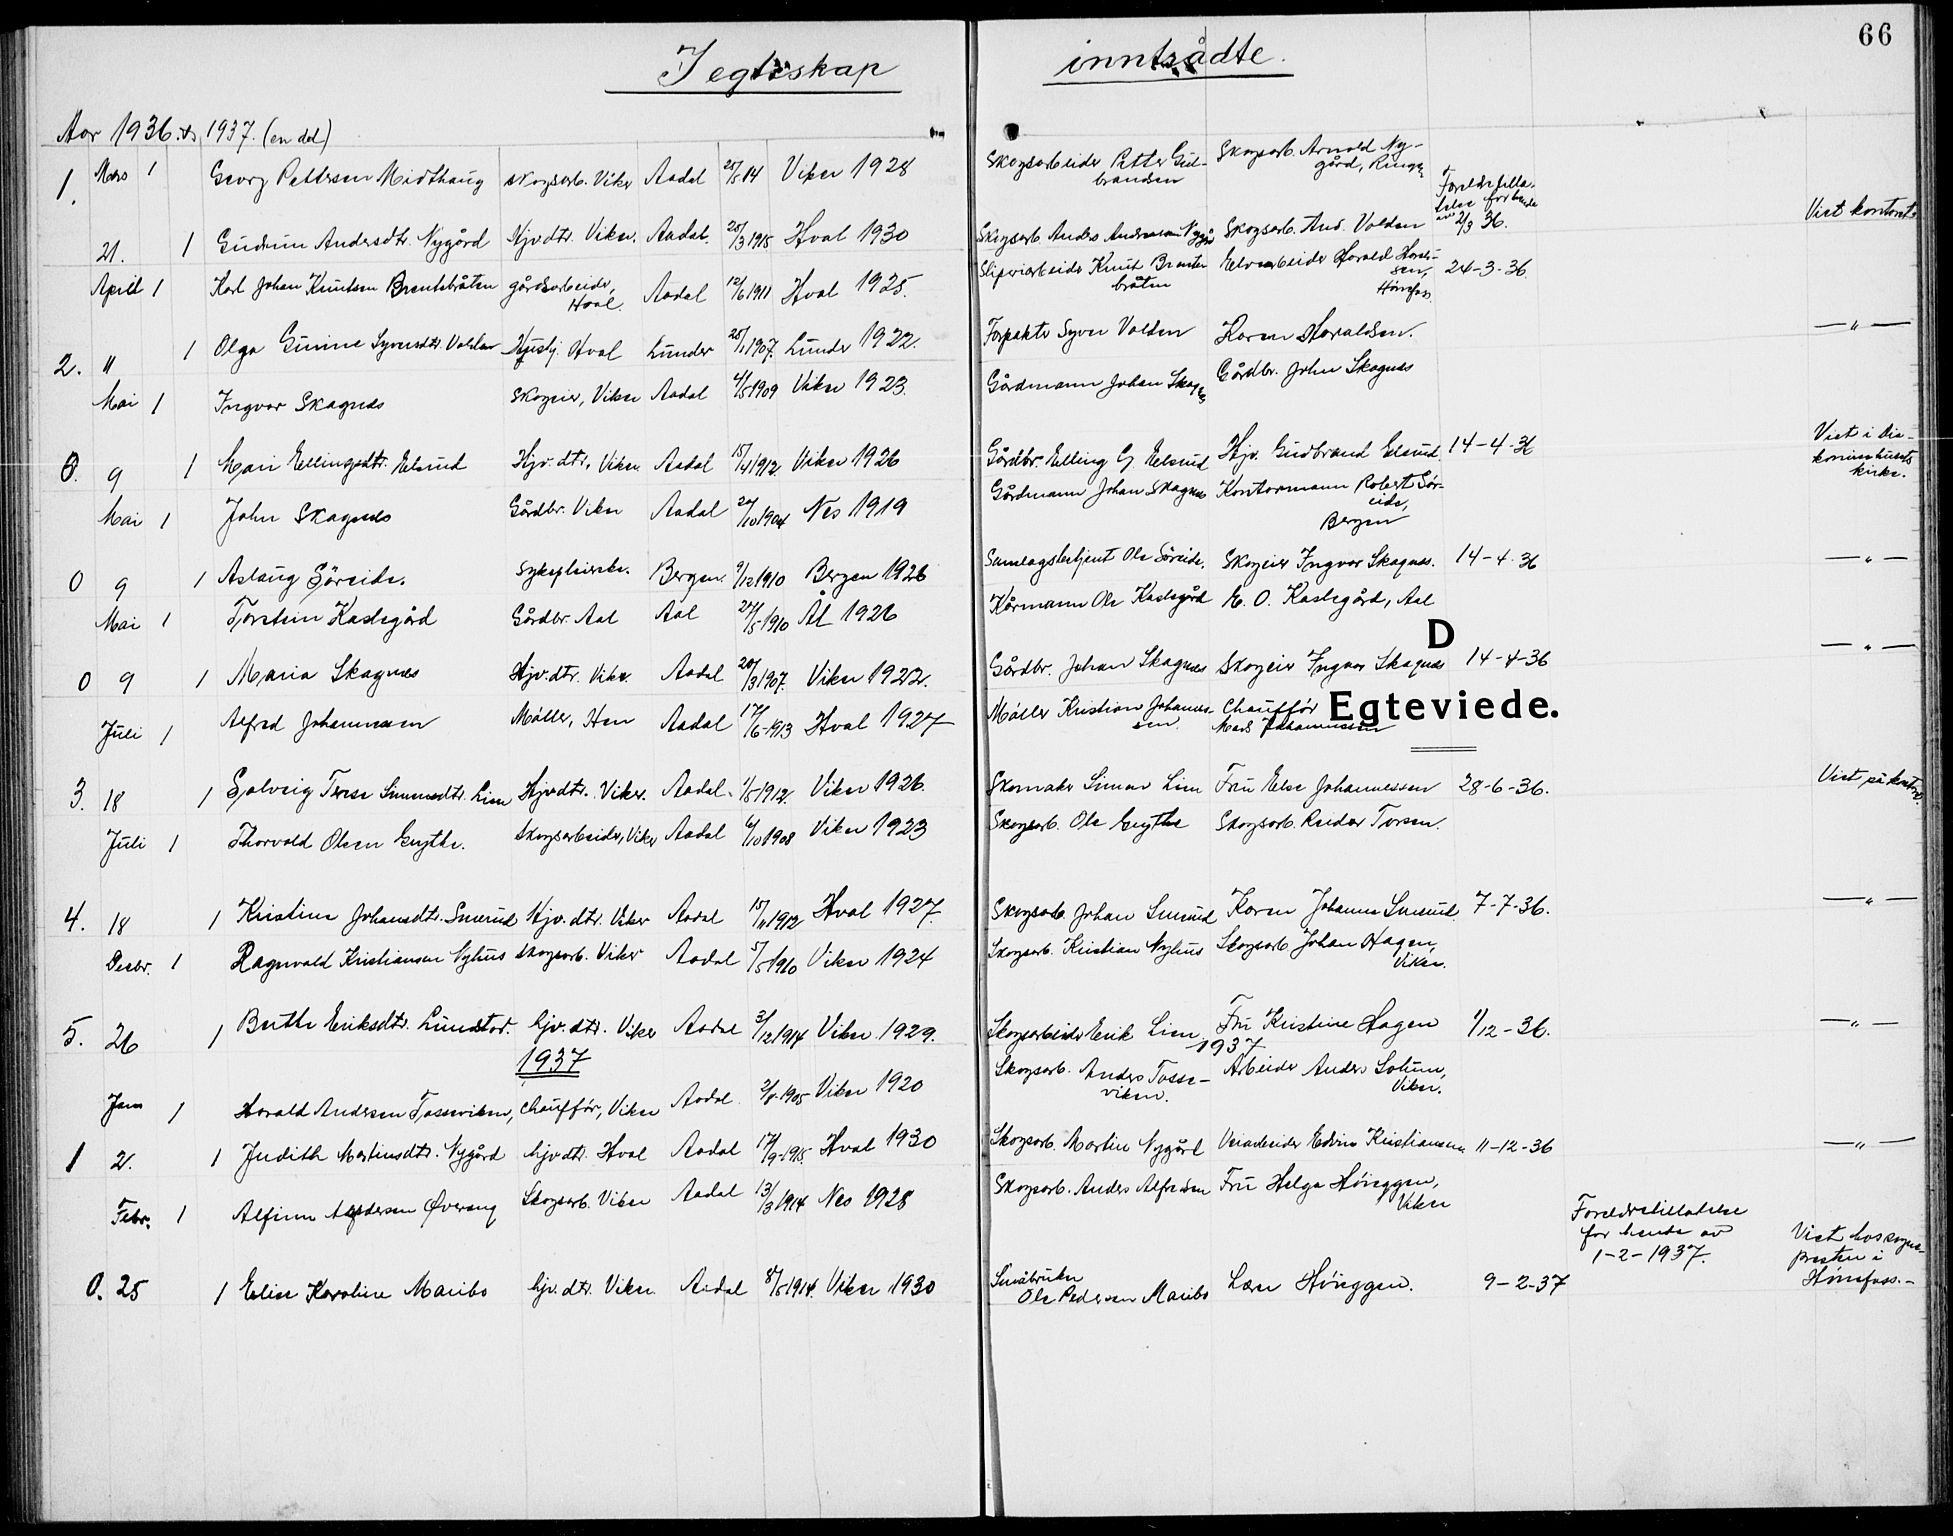 66
I egteskap inntrådte.
Aar 1936. & 1937. (en del)
1. Mars 1 Georg Pettersen Midthaug skogsarb. Viker Aadal 28/5 14 Viker 1928 Skogsarbeider Petter Gul-
brandsen Skogsarb. Arnold Ny-
gård,
21. 1 Gudrun Andersdtr. Nygård Hjv.dtr. Viker. Aadal. 28/3 1915 Hval 1930 Skogsarb. Anders Andersen Nygård Skogsarb. And. Volden 2/3 36. Viet kontoret
April 1 Karl Johan Knutsen Brentebråten gårdsarbeider,
Hval Aadal 12/6 1911 Hval 1925. Sliperiarbeider Knut Brente-
bråten Elvearbeider Harald Hansen,
Hønefoss 24-3-36
2. " 1 Olga Gunine Syversdtr. Volden Hushj. Hval Lunder 1907. Lunder 1922. Forpakter Syver Volden Karen Haraldsen. — " —
Mai 1 Ingvar Skagnæs Skogeier, Viker Aadal 4/5 1909 Viker 1923. Gårdmann Johan Skagnæs Gårdbr. John Skagnæs
0. 9 1 Mari Ellingsdtr. Elsrud Hjv. dtr, Viker Aadal 15/4 1912 Viker 1926 Gårdbr. Elling G. Elsrud Hjv. Gudbrand Elsrud 14-4-36 Viet i Dia-
konissehusets
kirke.
Mai 1 John Skagnæs Gårdbr. Viker Aadal 24/10 1904 Nes 1919 Gårdmann Johan Skagnæs Kontormann Robert Sör-
eide,
Bergen
0 9 1 Aslaug Söreide. Sykepleierske. Bergen. 9/12 1910 Bergen 1926 Samlagsbetjent Ole Söreide. Skogeier Ingvar Skagnæs. 14-4-36 — " —
Mai 1 Torstein Kaslegård Gårdbr. Aal Aal 24/5-1910 Ål 1926 Kårmann Ole Kaslegård E. O. Kaslegård, Aal
D
0 9 1 Maria Skagnæs Hjv.dtr. Viker Aadal 20/3 1907. Viker 1922. Gårdbr. Johan Skagnæs Skogeier Ingvar Skagnæs 14-4-36 — " —
Egteviede.
Juli 1 Alfred Johannessen Møller, Hen Aadal 17/6-1913 Hval 1927 Møller Kristian Johannes-
sen. Chauffør
Mads Johannessen
3. 18 1 Solveig Terese Simensdtr. Lien Hjv.dtr. Viker. Aadal. 1/5 1912. Viker 1926. Skomaker Simen Lien Fru Else Johannessen 28-6-36. Viet på kontoret
Juli 1 Thorvald Olsen Grythe. Skogsarbeider, Viker Aadal 6/10 1908 Viker 1923 Skogsarb. Ole Grythe Skogsarb. Reidar Torsen.
4. 18 1 Kristine Johansdtr. Smerud Hjv. dtr. Viker Aadal 15/11 1912 Hval 1927. Skogsarb. Johan Smerud Karen Johanne Smerud. 7-7-36. — " —
Desbr. 1 Ragnvald Kristiansen Nyhus Skogsarb. Viker Aadal 5/5 1910 Viker 1924 Skogsarb. Kristian Nyhus Skogsarb Johan Hagen,
Viker.
5. 26 1 Borthe Eriksdtr. Lundstad. hjv. dtr. Viker Aadal 3/12 1914 Viker 1929. Skogsarbeider Erik Lien Fru Kristine Hagen 1/12-36. — " —
1937
1937
Jan 1 Harald Andersen Tosseviken, Chauffør, Viker Aadal 2/8-1905 Viker 1920 Skogsarb. Anders Tosse-
viken. Arbeider Anders Solum,
Viker.
1 2. 1 Judith Martinsdtr. Nygård hjv.dtr. Hval Aadal 17/9-1915. Hval 1930 Skogsarb. Martin Nygård Veiarbeider Edvin Kristiansen 11-12-36 — " —
Febr. 1 Alfinn Andersen Øvereng Skogsarb. Viker Aadal 13/3 1914 Nes 1928 Skogsarb. Anders Alfredsen Fru Helga Høiggen,
Viker
Foreldretillatelse
for hende av
1-2-1937.
0. 25 1 Elise Karoline Maribo hjv. dtr. Viker Aadal 8/5 1914. Viker 1930 Småbruker
Ole Pedersen Maribo Lars Høiggen. 9-2-37 Viet hos sogne-
presten i
Hønefoss.-